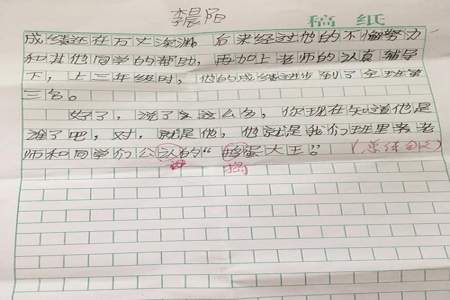 李晨阳
稿纸
成绩还在万丈深渊。后来经过他的不懈努力
和其他同学的帮助，再加上老师的认真辅导
下，上三年级时，他的成绩进步到了全班第
三名。
好了，说了这么多，你现在知道他是
谁了吧，对，就是他，他就是我们班里老
师和同学们公认的“ 蛋大王”。
捣